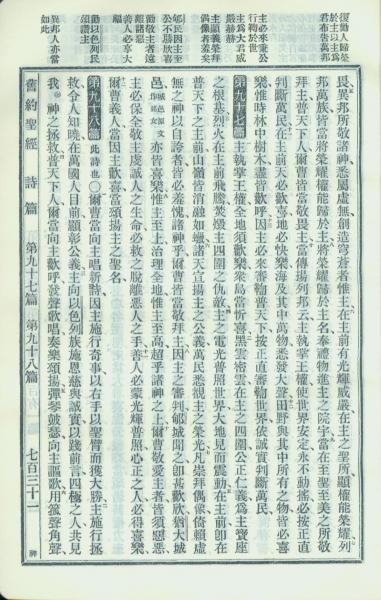 復勸人歸榮
於主以主爲
君布告萬邦
主必來秉公
行鞫於世
主爲大君威
嚴赫赫
主顯義榮拜
偶像者羞矣
郇民因主至
公不勝欣喜
勸敬主者遠
離諸惡
善人必享大
福
勸以色列民
頌讚主
異邦人亦當
如此
畏異邦所敬諸神悉屬虛無創造穹蒼者惟主在主前有光輝威嚴在主之聖所顯權能榮耀列
邦萬族皆當將榮耀權能歸於主將榮耀歸於主名奉禮物進主之院宇當在至聖至美之所敬
拜主普天下人爾曹皆當敬畏主當傳揚列邦云主執掌王權使世界安定永不動搖必按正直
判斷萬民在主前天必歡喜地必快樂海及其中萬物悉發大聲田野與其中所有之物皆必喜
樂維時林中樹木盡皆歡呼因主必來審鞫普天下按正直審鞫世界依誠實判斷萬民
第九十七篇 主執掌王權全地須歡樂衆島當忻喜黑雲密雲在主之四圍公正仁義爲主寶座
之根基烈火在主前飛騰焚燬主四圍之仇敵主之電光普照世界大地見而震動在主前卽在
普天下之主前山嶺皆消融如蠟諸天宣揚主之公義萬民悉覩主之榮光凡崇拜偶像倚賴虛
無之神以自誇者皆必羞愧諸神乎爾曹皆當敬拜主因主之審判郇城聞之卽甚歡欣猶大城
邑城邑原文作諸女亦皆喜樂惟主至上治理全地惟主至高超乎諸神之上爾曹敬愛主者皆須惡惡
主必保全敬主虔誠人之生命必救之脫離惡人之手善人必蒙光輝普照心正之人必得喜樂
爾曹義人當因主歡喜當頌揚主之聖名
第九十八篇 此詩也〇爾曹當向主唱新詩因主施行奇事以右手以聖臂而獲大勝主施行拯
救令人知曉在萬國人目前顯彰公義主向以色列族施恩慈與誠實以踐前言四極之人共見
我神之拯救普天下人爾當向主歡呼發聲歌唱奏樂頌揚彈琴鼓瑟向主謳歌用箛聲角聲
舊約聖經 詩篇 第九十七篇 第九十八篇 七百三十一